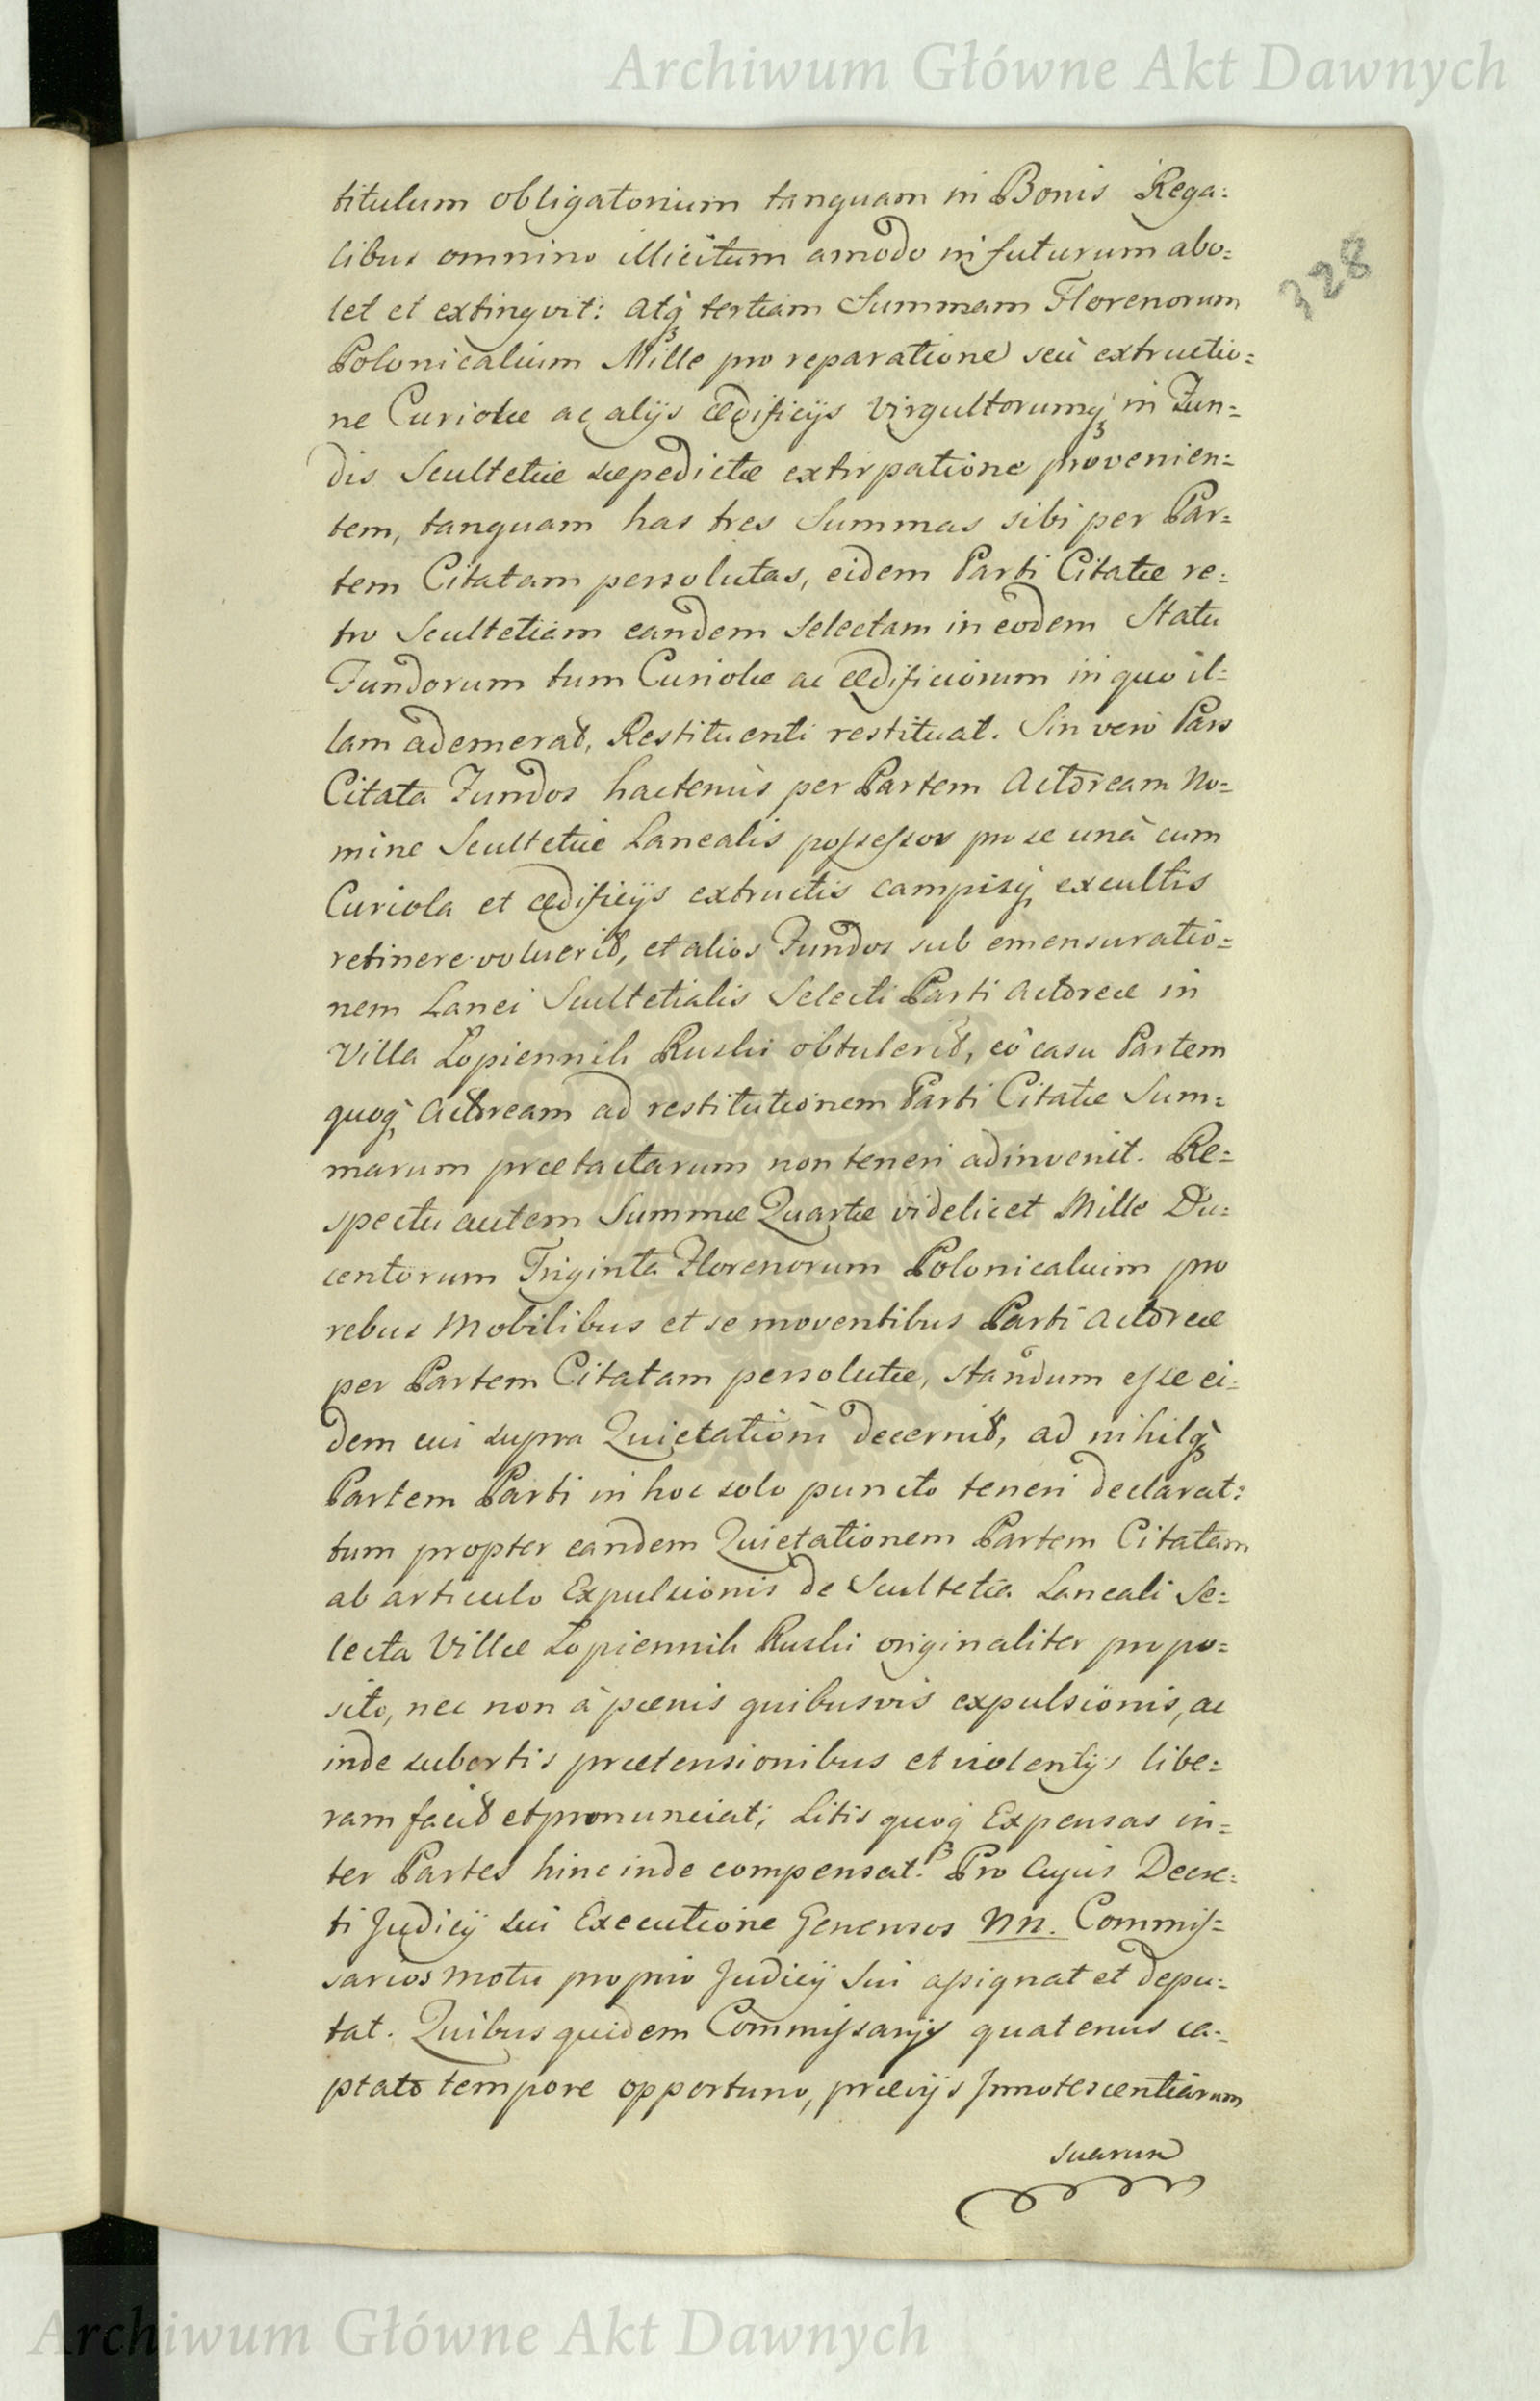 Archiwum Główne Akt Dawnych
328
titulum obligatorium tanquam in Bonis Rega:
libus omnino illicitum amodo in futurum abo:
let et extingvit: atq́ tertiam Summam Florenorum
Polonicalium Mille pro reparatione seù extructio:
ne Curiolæ ac alijs ædificijs Virgultorumq́ in Fun:
dis Scultetiæ sæpedictæ extirpatione provenien:
tem, tanquam has tres Summas sibi per Par:
tem Citatam persolutas, eidem Parti Citatæ re:
tro Scultetiam eandem selectam in eodem Statu
Fundorum tum Curiolæ ac ædificiorum in quo il:
lam ademerat, Restituenti restituat. Sin verò Pars
Citata Fundos hactenùs per Partem Actoream No:
mine Scultetiæ Lanealis possessos pro se unà cum
Curiola et ædificijs extructis campisq́ excultis
retinere voluerit, et alios Fundos sub emensuratio:
nem Lanei Scultetialis Selecti Parti Actoreæ in
Villa Łopiennik Ruski obtulerit, eò casu Partem
quoq́ Actoream ad restitutionem Parti Citatæ Sum:
marum prætactarum non teneri adinvenit. Re:
spectu autem Summæ Quartæ videlicet Mille Du:
centorum Triginta Florenorum Polonicalium pro
rebus Mobilibus et se moventibus Parti Actoreæ
per Partem Citatam persolutæ, standum esse ei:
dem cui supra Quietationi decernit, ad nihilq́
Partem Parti in hoc solo puncto teneri declarat:
tum propter eandem Quietationem Partem Citatam
ab articulo Expulsionis de Scultetia Laneali Se:
lecta Villæ Łopiennik Ruski originaliter propo:
sito, nec non à pænis quibusvis expulsionis, ac
inde subortis prætensionibus et violentijs libe:
ram facit et pronunciat; Litis quoq́ Expensas in:
ter Partes hinc inde compensat. Pro Cujus Decre:
ti Judicij sui Executione Generosos NN. Commis:
sarios motu proprio Judicij Sui assignat et depu:
tat. Quibus quidem Commissarijs quatenus ca:
ptato tempore opportuno, prævijs Innotescentiarum
suarum
Archiwum Główne Akt Dawnych